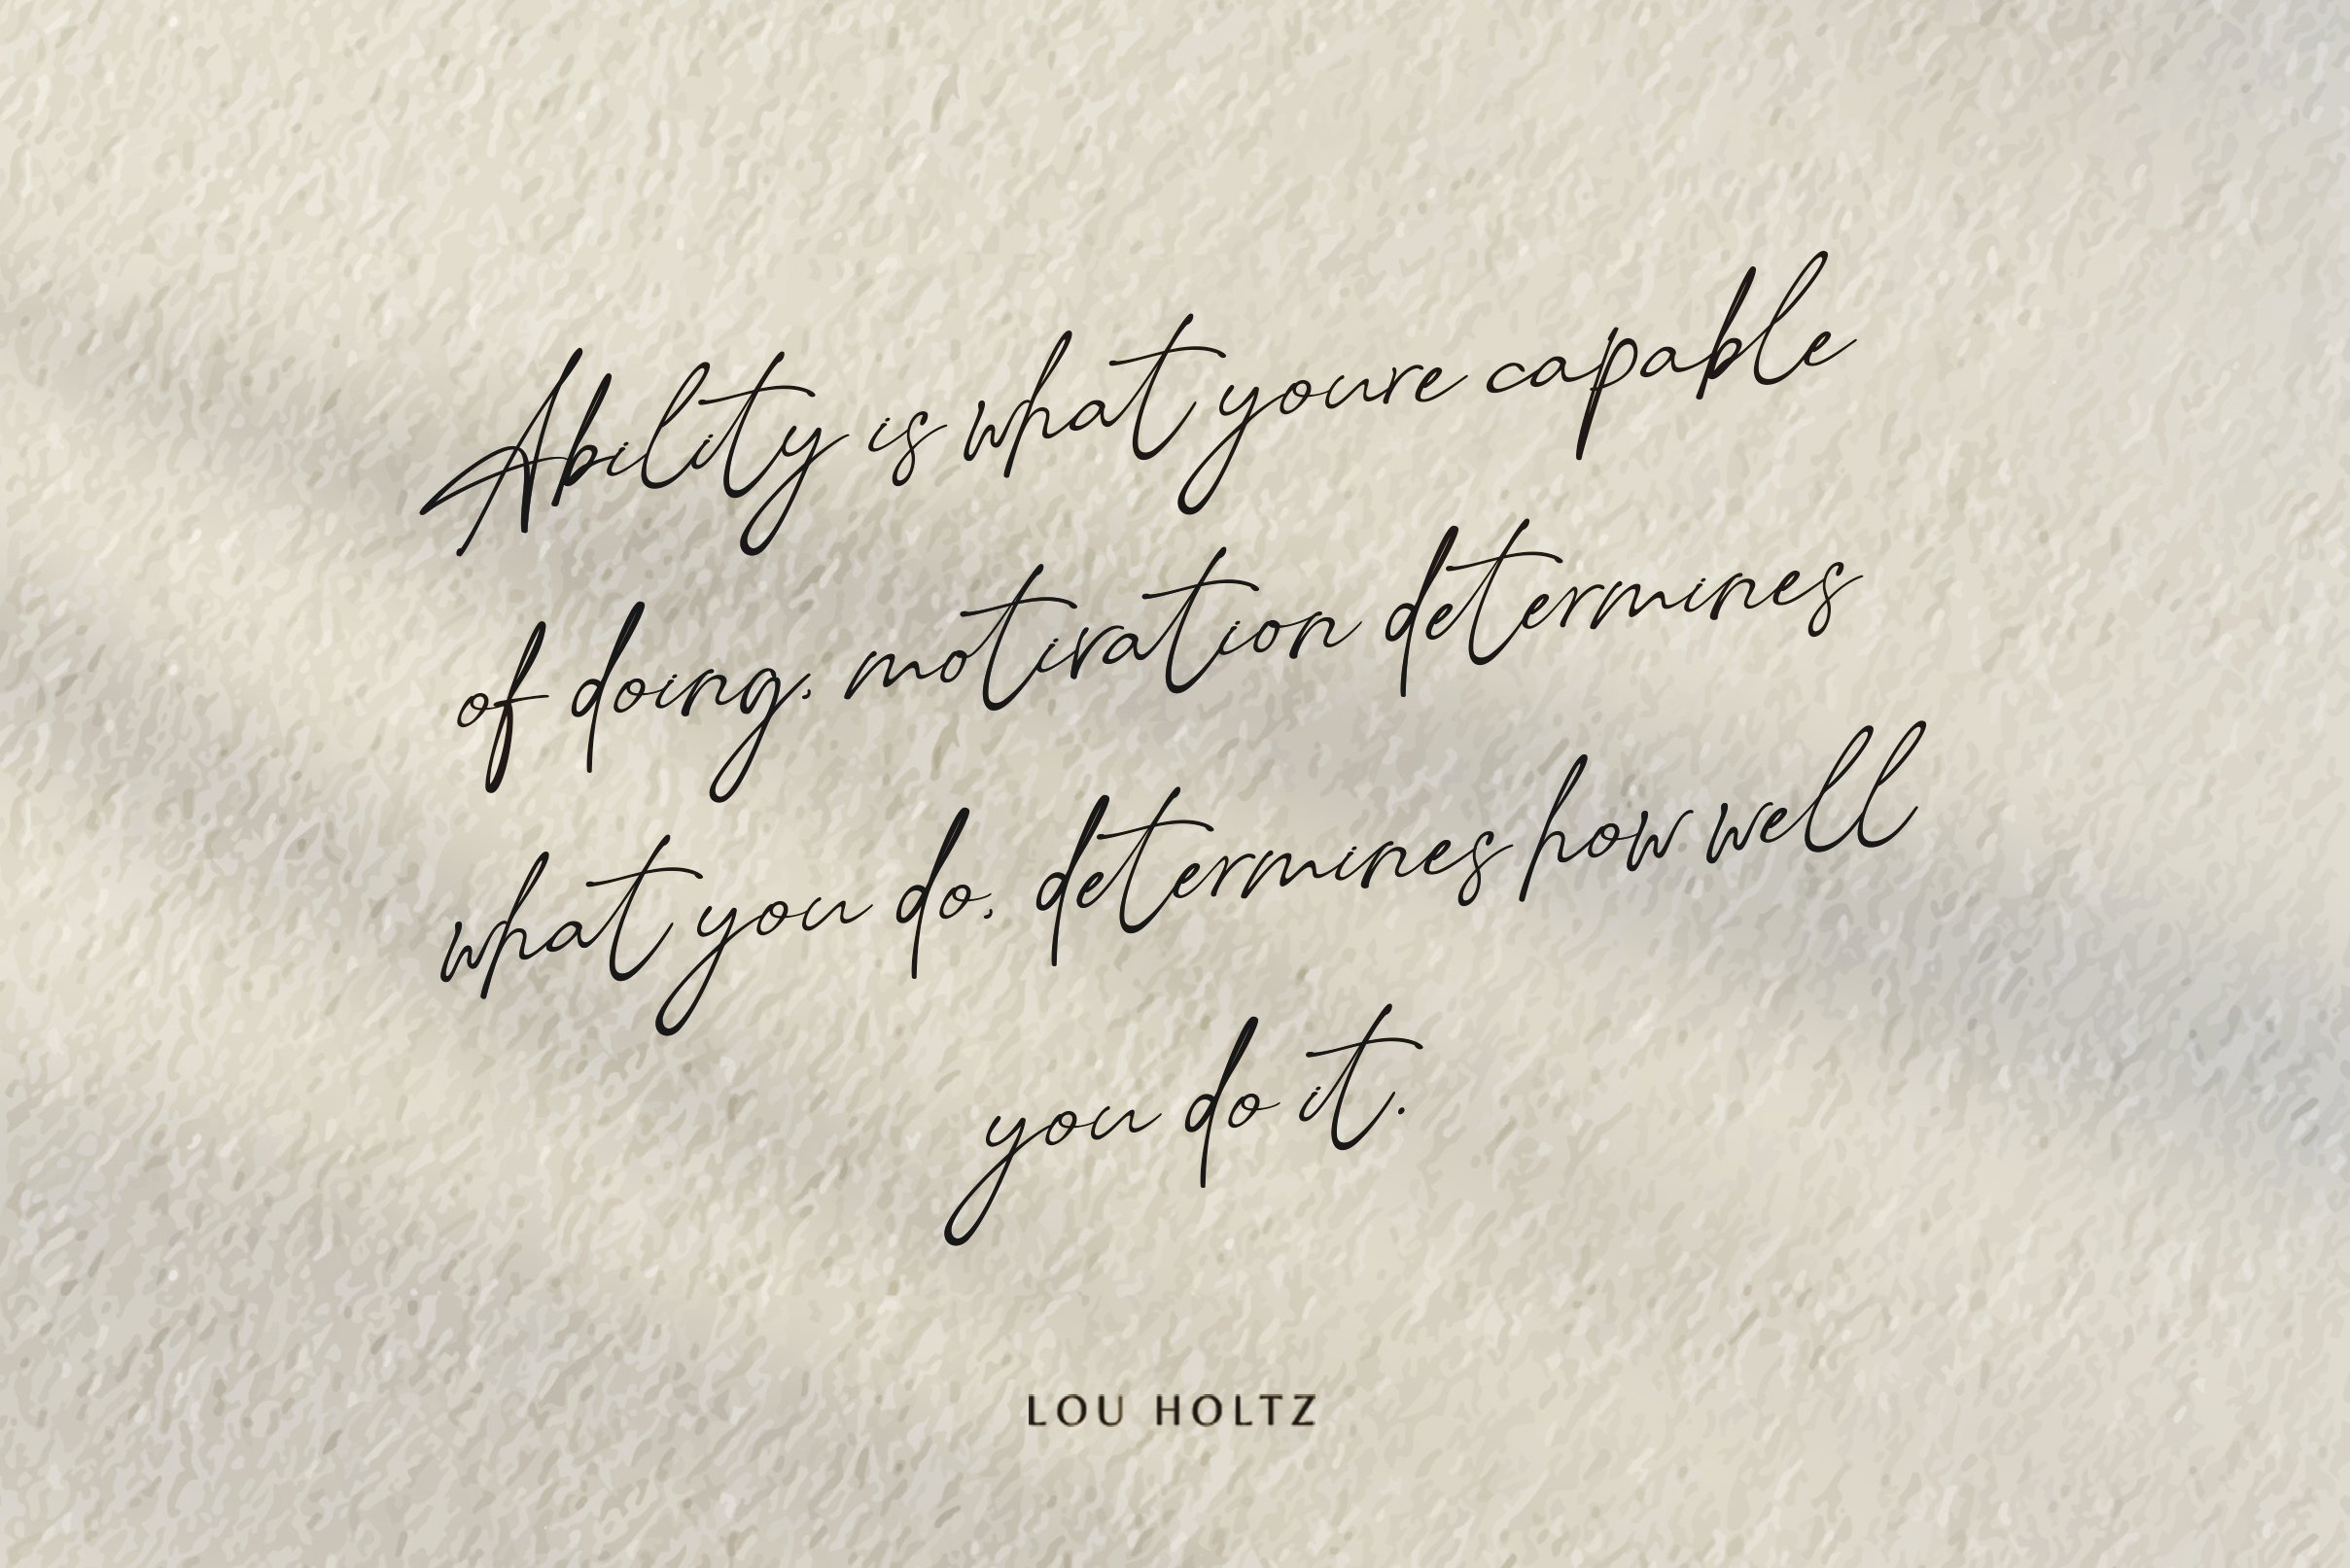 Ability is what youre capable
of doing, motivation determines
what you do, determines how well
you do it.
LOU HOLTZ